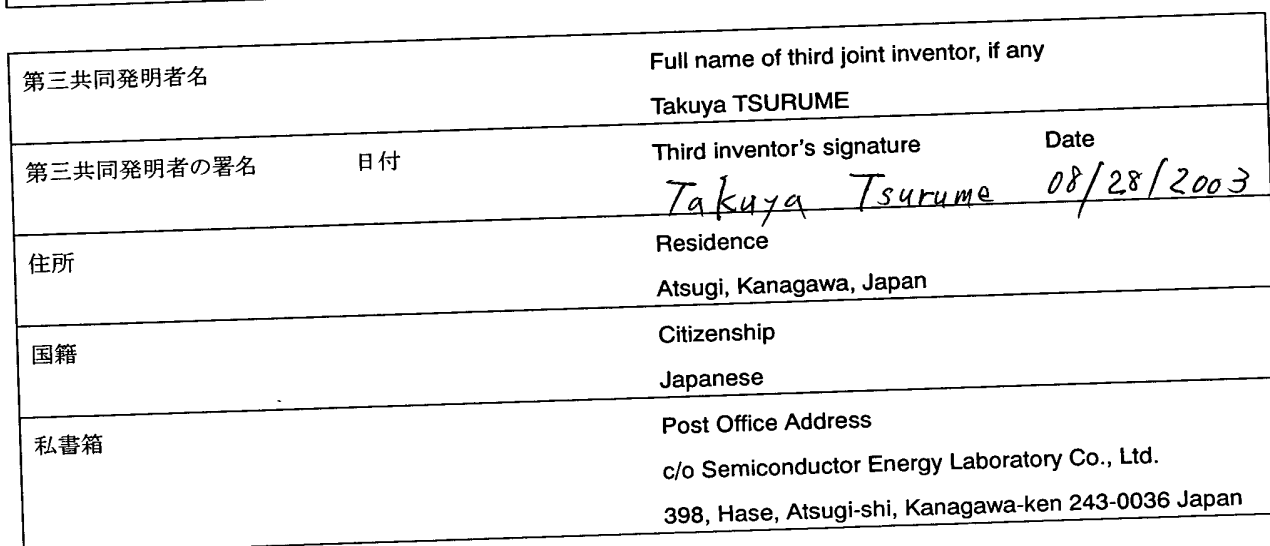 第三共同発明者名
Full name of third joint inventor, if any
Takuya TSURUME
第三共同発明者の署名 日付
Third inventor's signature Date
Takuya Tsurume 08/28/2003
住所
Residence
Atsugi, Kanagawa, Japan
国籍
Citizenship
Japanese
私書箱
Post Office Address
c/o Semiconductor Energy Laboratory Co., Ltd.
398, Hase, Atsugi-shi, Kanagawa-ken 243-0036 Japan